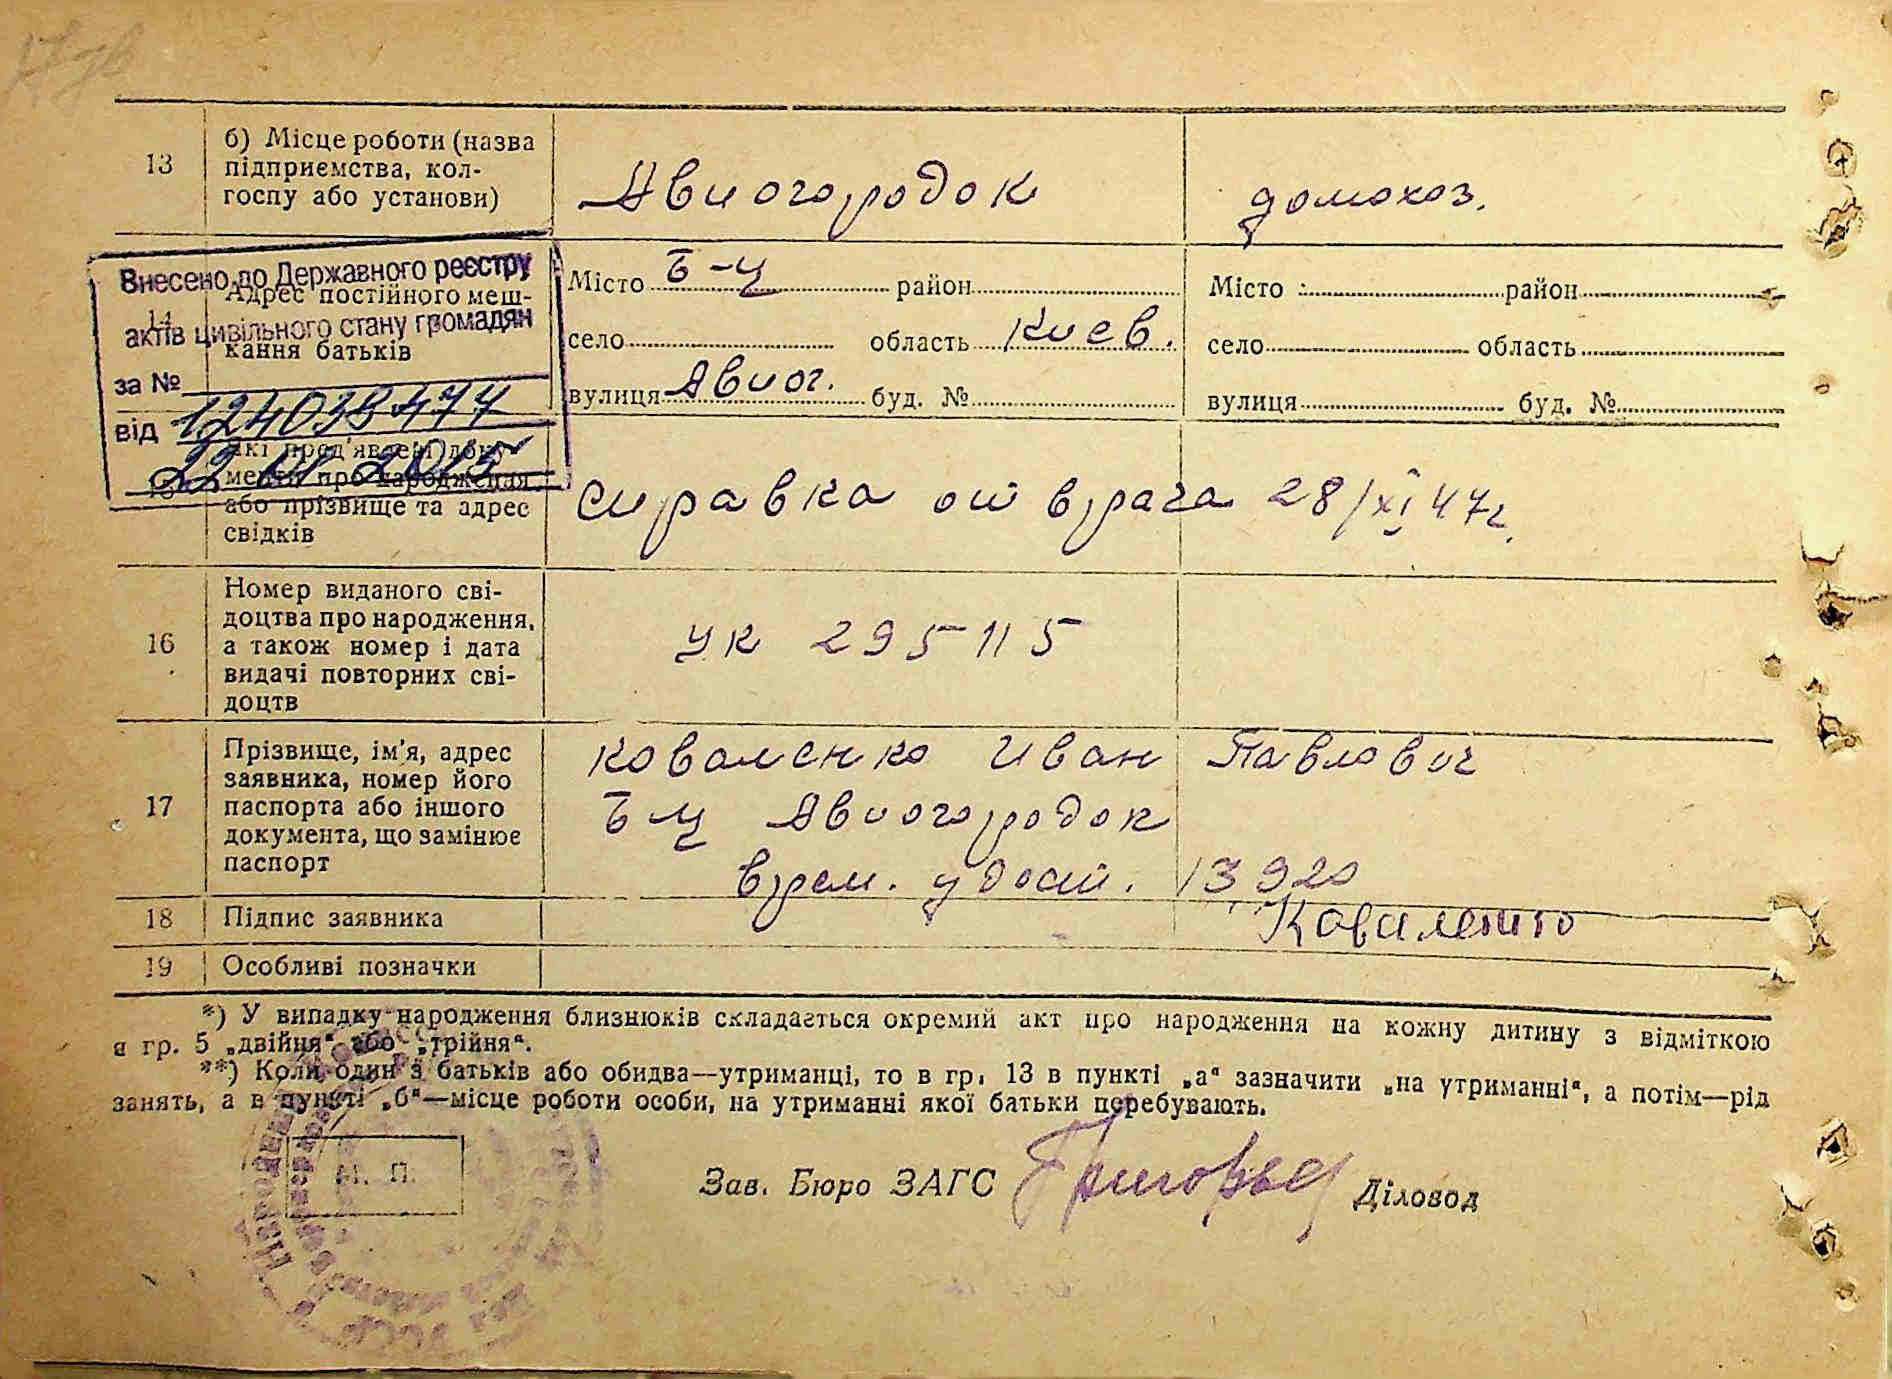 13
б) Місце роботи (назва
підприємства, кол-
госпу або установи)
Авиогородок
домохоз.
Внесено до Державного реєстру
актів цивільного стану громадян
за №
від
14
Адрес постійного меш-
кання батьків
Місто Б-Ц район
село область Киев.
вулиця Авиог. буд. №
Місто район
село область
вулиця буд. №
15
Які пред'явлені доку-
менти про народження
або прізвище та адрес
свідків
справка от врача 28/XI 47г.
16
Номер виданого сві-
доцтва про народження,
а також номер і дата
видачі повторних сві-
доцтв
УК 295115
17
Прізвище, ім'я, адрес
заявника, номер його
паспорта або іншого
документа, що замінює
паспорт
Коваленко Иван Павлович
Б-Ц Авиогородок
врем. удост. 13920
18
Підпис заявника
Коваленко
19
Особливі позначки
*) У випадку народження близнюків складається окремий акт про народження на кожну дитину з відміткою
в гр. 5 „двійня“ або „трійня“.
**) Коли один з батьків або обидва—утриманці, то в гр. 13 в пункті „а“ зазначити „на утриманні“, а потім—рід
занять, а в пункті „б“—місце роботи особи, на утриманні якої батьки перебувають.
М. П.
Зав. Бюро ЗАГС
Діловод